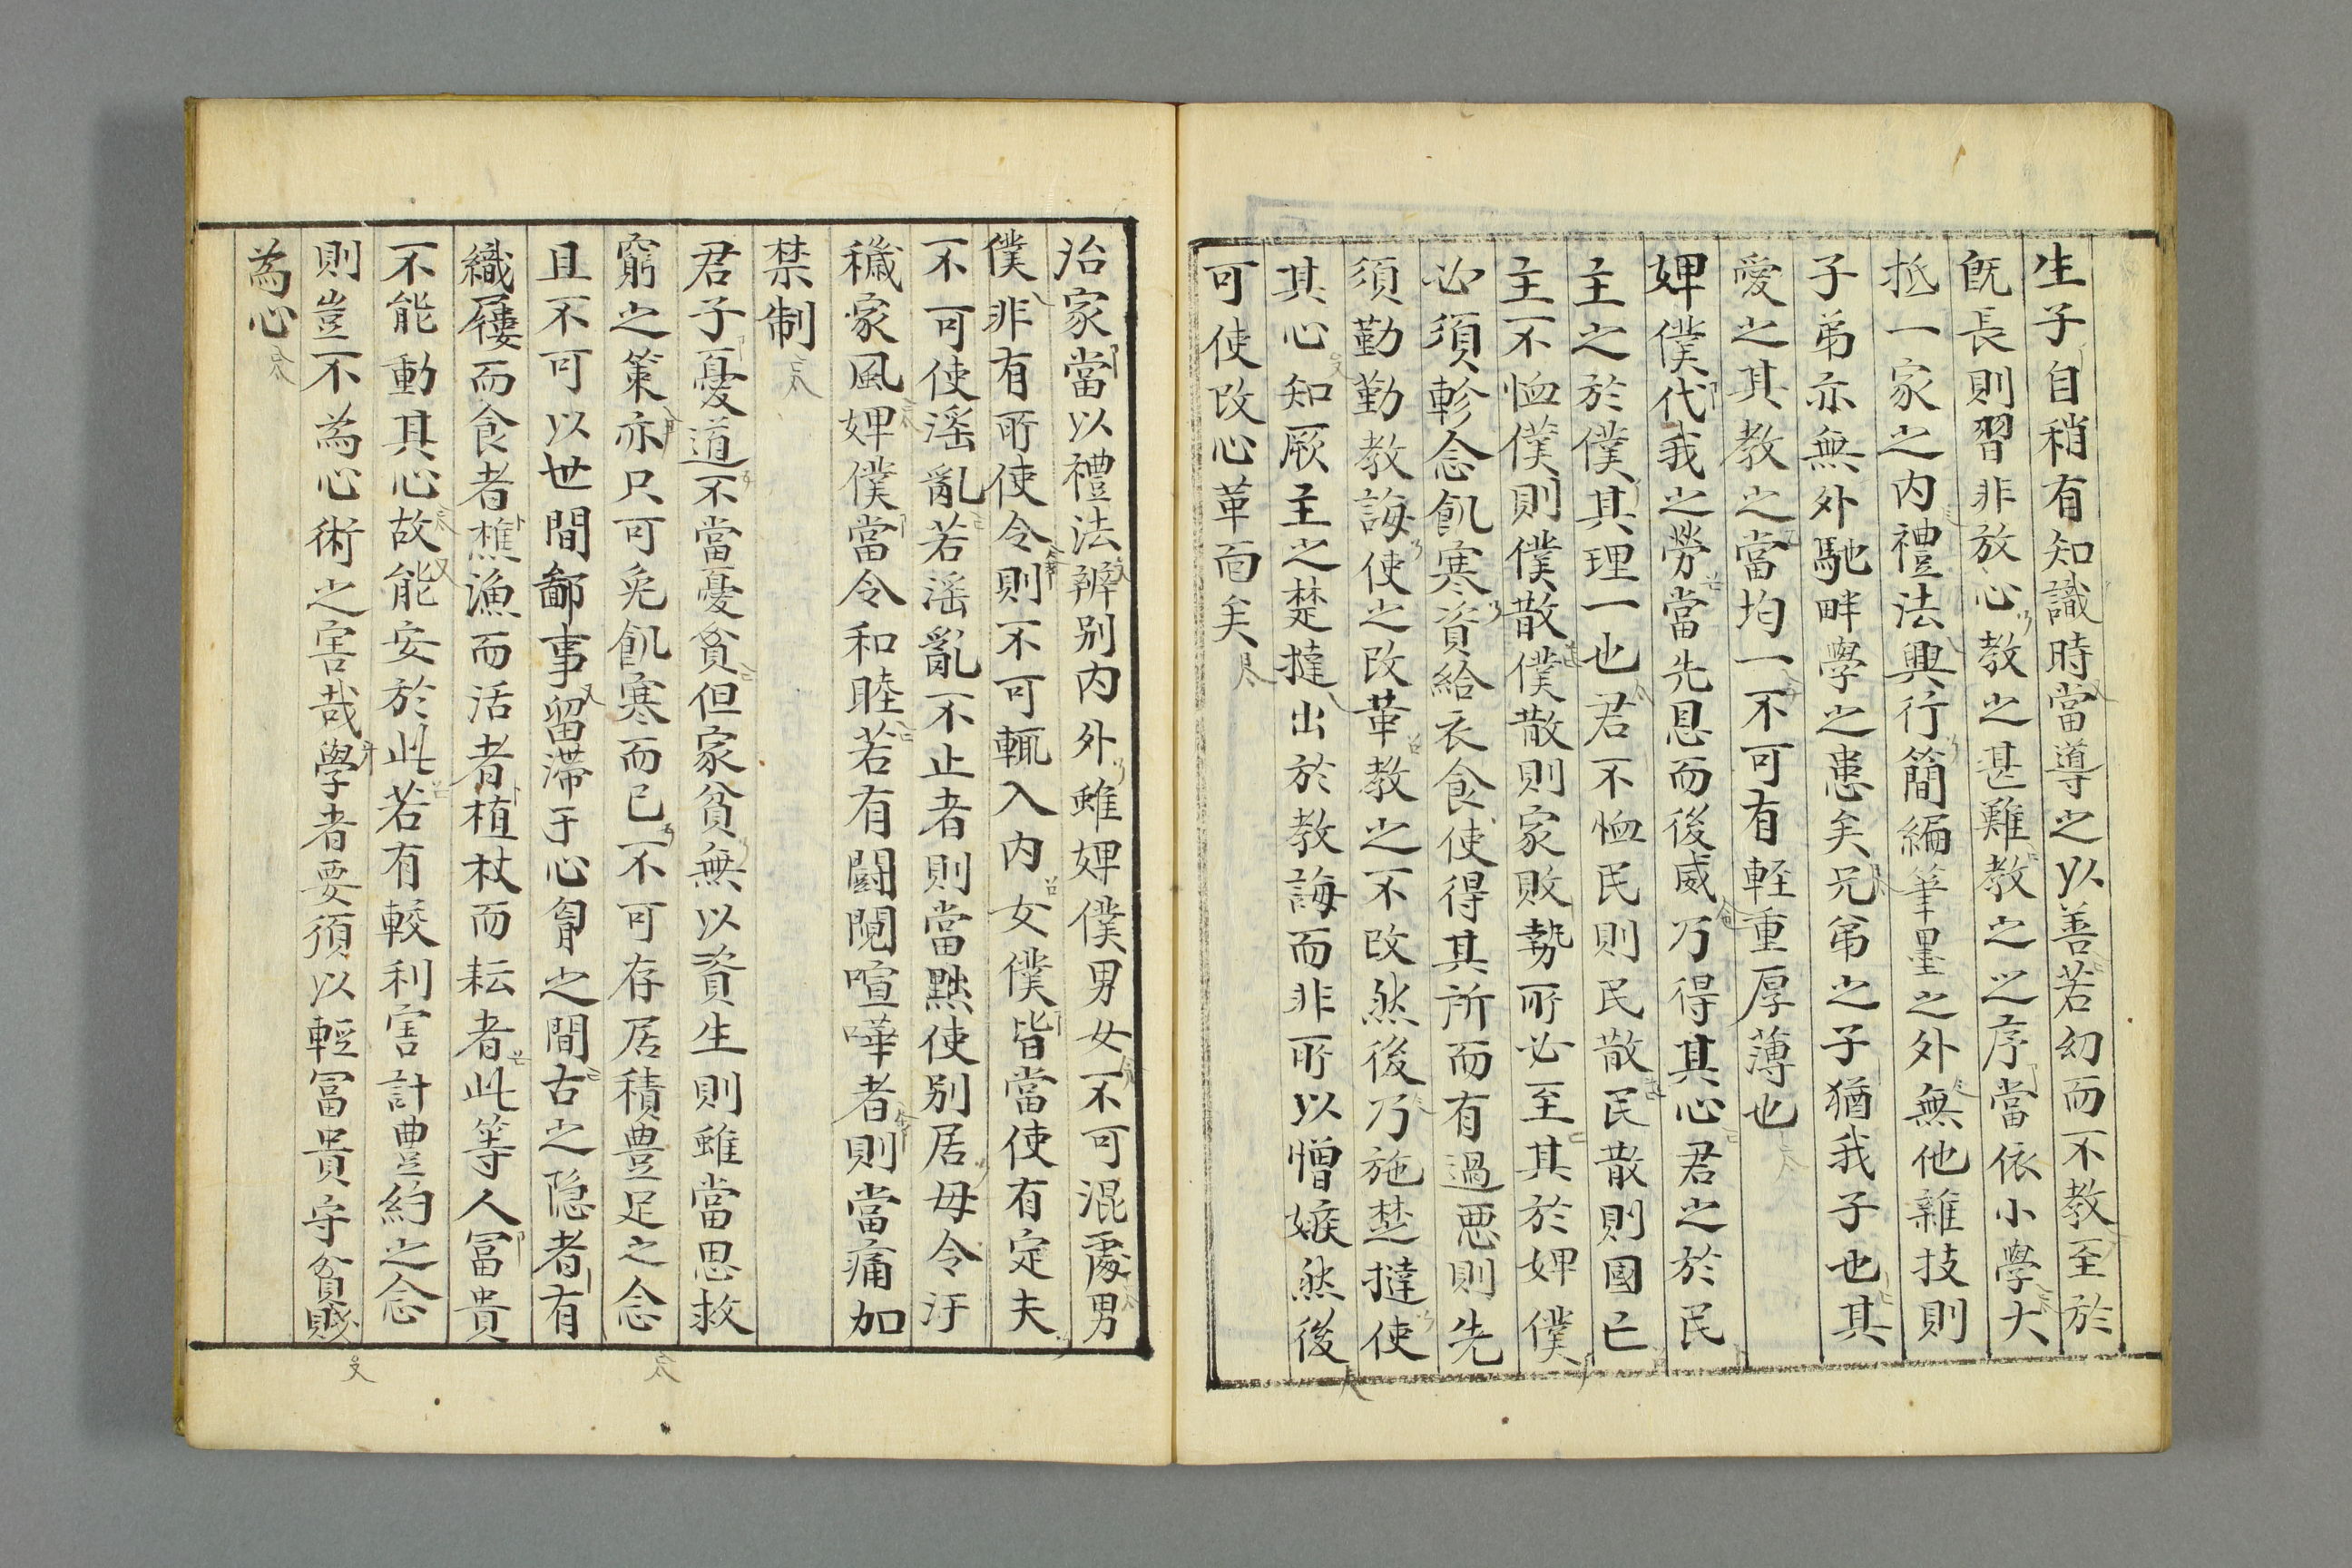 生子自稍有知識時當導之以善若幻而不教至於
旣長則習非放心教之甚難教之之序當依小學大
抵一家之內禮法興行簡編筆墨之外無他雜技則
子弟亦無外馳畔學之患矣兄弟之子猶我子也其
愛之其教之當均一不可有輕重厚薄也
婢僕代我之勞當先恩而後威乃得其心君之於民
主之於僕其理一也君不恤民則民散民散則國亡
主不恤僕則僕散僕散則家敗勢所必至其於婢僕
必須軫念飢寒資給衣食使得其所而有過惡則先
須勤勤教誨使之改革教之不改然後乃施楚撻使
其心知厥主之楚撻出於教誨而非所以憎嫉然後
可使改心革面矣
治家當以禮法辨别內外雖婢僕男女不可混處男
僕非有所使令則不可輒入內女僕皆當使有定夫
不可使淫亂若淫亂不止者則當黜使别居毋令汙
穢家風婢僕當令和睦若有鬪鬩喧嘩者則當痛加
禁制
君子憂道不當憂貧但家貧無以資生則雖當思救
窮之策亦只可免飢寒而已不可存居積豊足之念
且不可以世間鄙事留滯于心胷之間古之隠者有
織屨而食者樵漁而活者植杖而耘者此等人冨貴
不能動其心故能安於此若有較利害計豊約之念
則豈不為心術之害哉學者要須以輕冨貴守貧賤
為心